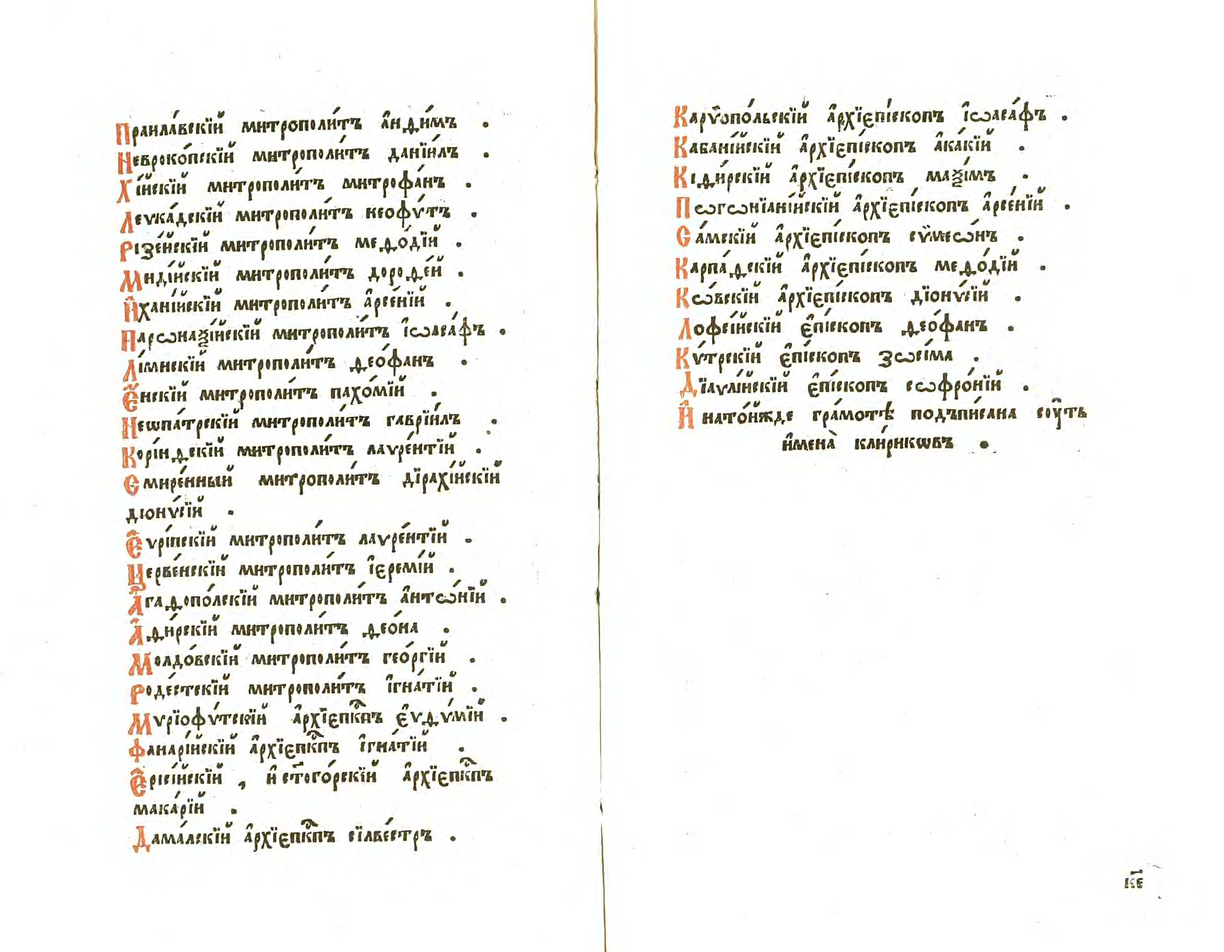 Праила́вскїй митрополи́тъ а҆нѳи́мъ .
Невроко́пскїй митрополи́тъ данїи́лъ .
Хі́йскїй митрополи́тъ митрофа́нъ .
Леѵка́дскїй митрополи́тъ неофѵ́тъ .
Ризе́йскїй митрополи́тъ меѳо́дїй .
Миді́йскїй митрополи́тъ дороѳе́й .
И҆хані́йскїй митрополи́тъ а҆рсе́нїй .
Парѡнаѯі́йскїй митрополи́тъ і҆ѡаса́фъ .
Лі́мнскїй митрополи́тъ ѳео́фанъ .
Є҆́нскїй митрополи́тъ пахо́мїй .
Неѡпа́трскїй митрополи́тъ гаврїи́лъ .
Корі́нѳскїй митрополи́тъ лаѵре́нтїй .
Смире́нный митрополи́тъ дїрахі́йскїй
дїонѵ́сїй .
Є҆ѵрі́пскїй митрополи́тъ лаѵре́нтїй .
Церве́нскїй митрополи́тъ і҆еремі́й .
А҆гаѳопо́лскїй митрополи́тъ а҆нтѡ́нїй .
А҆ѳи́рскїй митрополи́тъ ѳео́на .
Молдо́вскїй митрополи́тъ гео́ргїй .
Роде́стскїй митрополи́тъ і҆гна́тїй .
Мѵрїофѵ́тскїй а҆рхїепⷭ҇кпъ є҆ѵѳѵ́мїй .
Фанарі́йскїй а҆рхїепⷭ҇кпъ і҆гна́тїй .
Є҆рісі́йскїй , и҆ ст҃ого́рскїй а҆рхїепⷭ҇кпъ
мака́рїй .
Дама́лскїй а҆рхїепⷭ҇кпъ сїлве́стръ .
Карѵопо́льскїй а҆рхїепі́скопъ і҆ѡаса́фъ .
Кабані́йскїй а҆рхїепі́скопъ а҆ка́кїй .
Кіѳи́рскїй а҆рхїепі́скопъ маѯі́мъ .
Пѡгѡнїані́йскїй а҆рхїепі́скопъ а҆рсе́нїй .
Са́мскїй а҆рхїепі́скопъ сѵмеѡ́нъ .
Карпа́ѳскїй а҆рхїепі́скопъ меѳо́дїй .
Кѡ́вскїй а҆рхїепі́скопъ дїонѵ́сїй .
Лофсі́йскїй є҆пі́скопъ ѳео́фанъ .
Кѵ́трскїй є҆пі́скопъ зѡсі́ма .
Дїаѵлі́йскїй є҆пі́скопъ сѡфро́нїй .
И҆ нато́йжде гра́мотѣ подъпи́сана сꙋ́ть
и҆мена̀ кли́рикѡвъ .
к҃є